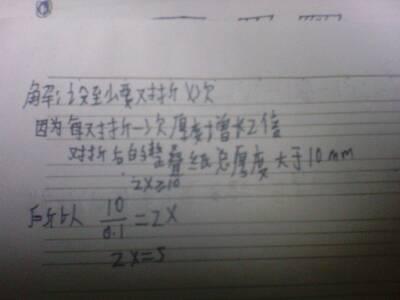 解：设至少要对折X次
因为每对折一次厚度增长2倍
对折后的整叠纸总厚度大于10mm
2X≥10
所以 10/0.1=2X
2X=5